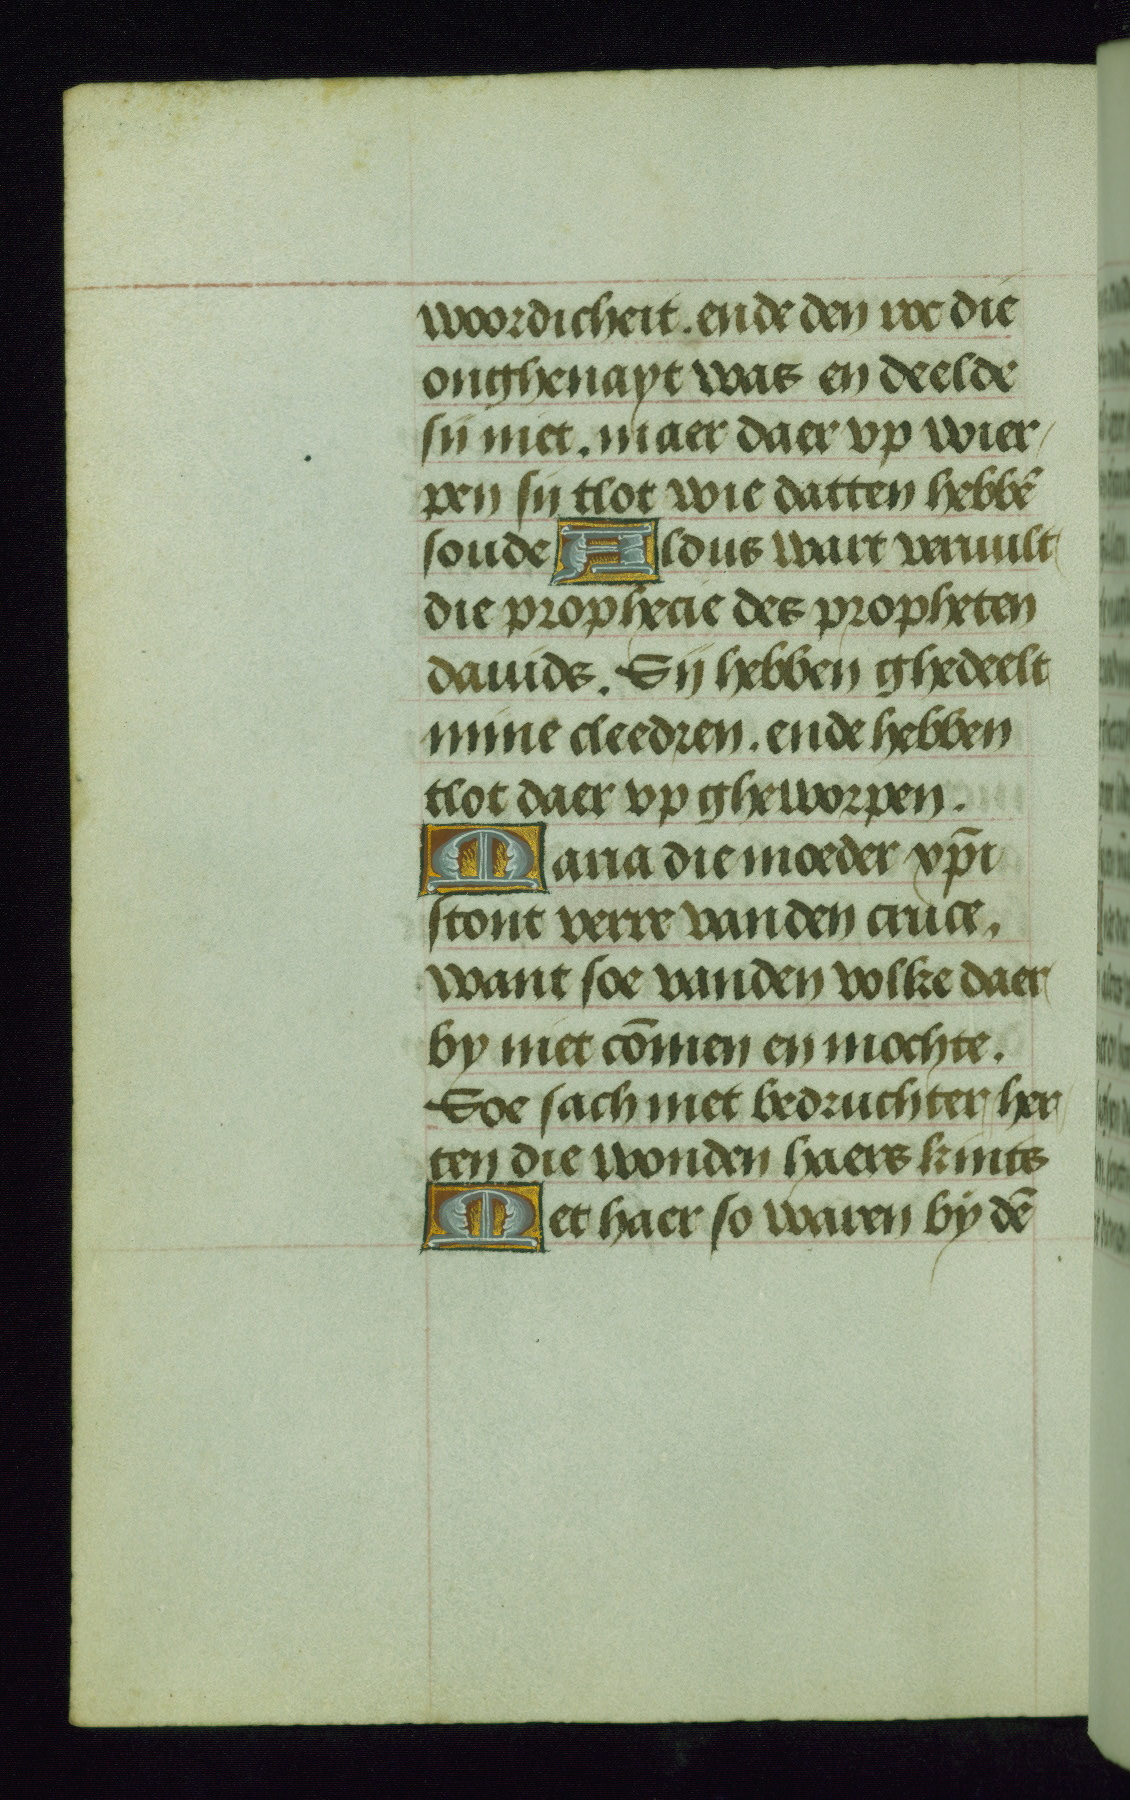 woordicheit. ende den roc die
onghenayt was en deelde
sij niet. maer daer vp wier
pen sij tlot wie datten hebbē
soude Aldus wart veruult
die prophecie des propheten
dauids. Sij hebben ghedeelt
mine cleedren. ende hebben
tlot daer vp gheworpen.
Maria die moeder xp̄i
stont verre vanden cruce.
want soe vanden volke daer
by niet cōmen en mochte.
Soe sach met bedruchter her
ten die wonden haers kints
Met haer so waren by dē